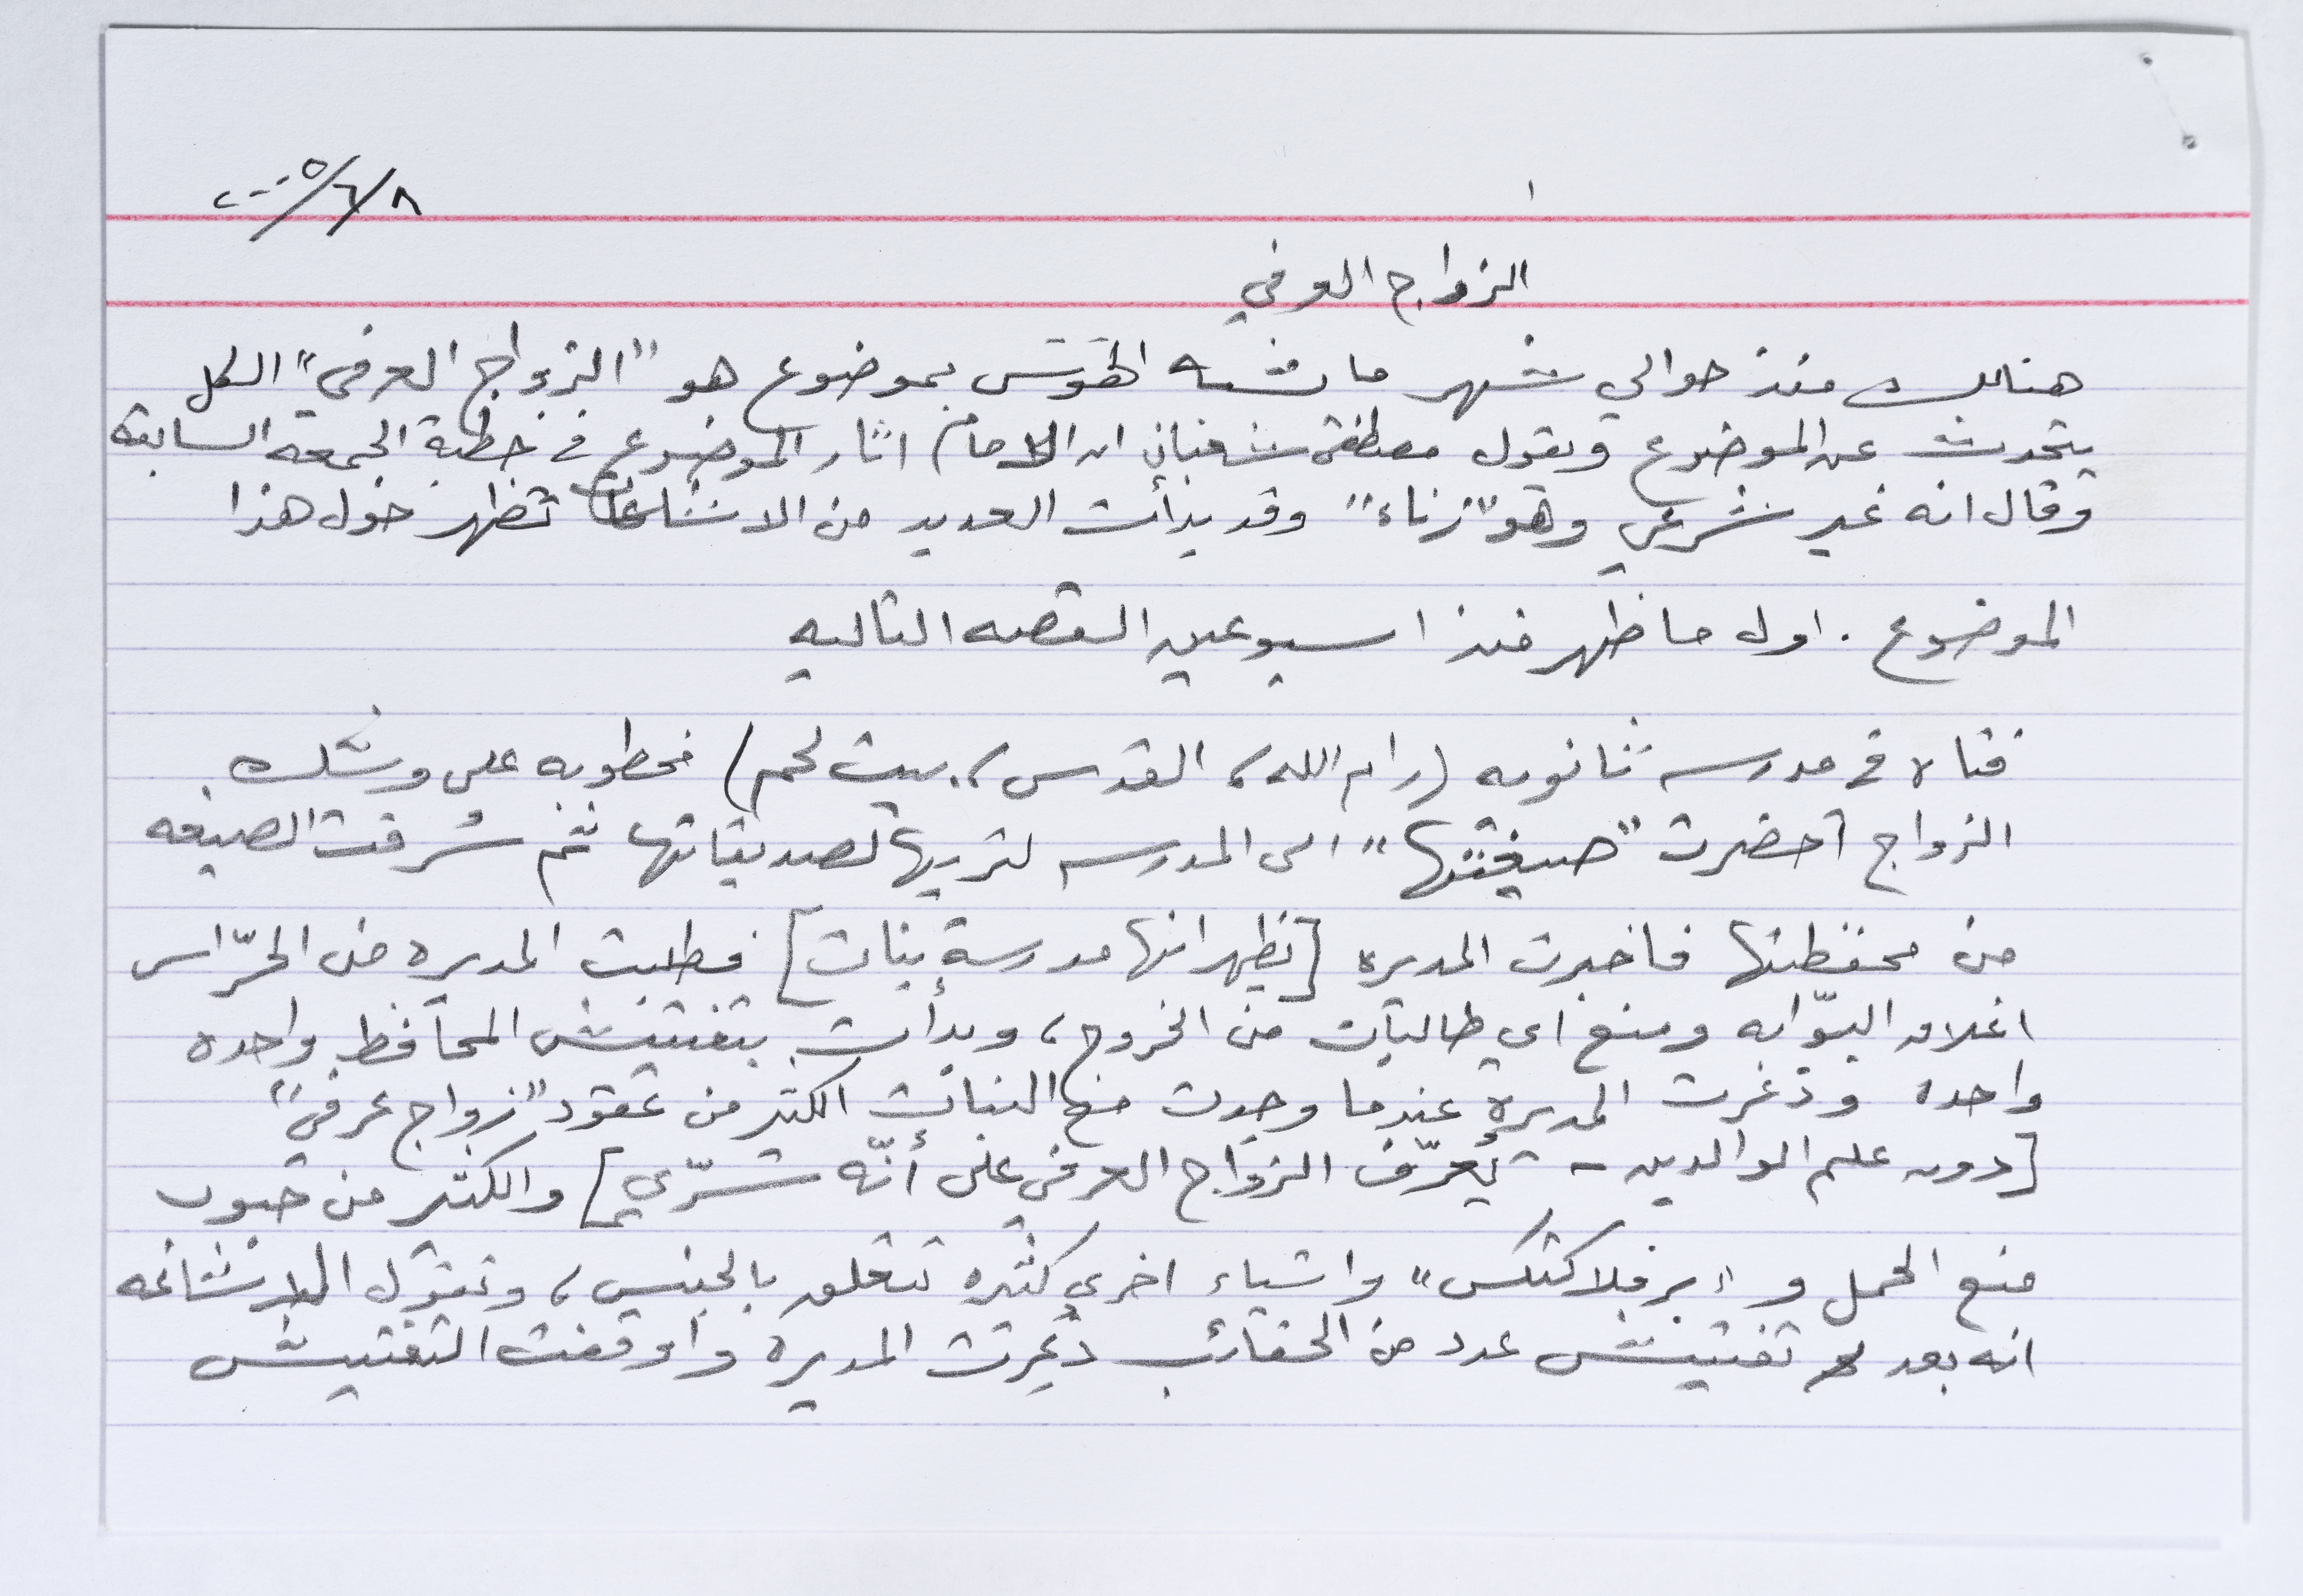 ٢٠٠٥/٦/٨
١
الزواج العرفي
هنالك منذ حوالي شهر ما يشبه الهوس بموضوع هو "الزواج العرفي" الكل
يتحدث عن الموضوع ويقول مصطفى شعباني ان الامام اثار الموضوع في خطبة الجمعه السابقه
وقال انه غير شرعي وهو "زناء" وقد بدأت العديد من الاشاعات تظهر حول هذا
الموضوع. اول ما ظهر منذ اسبوعين القصه التاليه
فتاه في مدرسه ثانويه (رام الله، القدس، بيت لحم) مخطوبه على وشك
الزواج أحضرت "صيغتها" الى المدرسه لتريها لصديقاتها ثم سُرقت الصيغه
من محفظتها فاخبرت المديره [تظهر انها مدرسة بنات] فطلبت المديره من الحرّاس
اغلاق البوّابه ومنع اي طالبات من الخروج، وبدأت بتفتيش المحافظ واحده
واحده وذعرت المديره عندما وجدت مع البنات الكثير من عقود "زواج عرفي"
[دون علم الوالدين - يُعرّف الزواج العرفي على أنّه سرّي] والكثير من حبوب
منع الحمل و "برفلاكتكس" واشياء اخرى كثيره تتعلق بالجنس، وتقول الاشاعه
انه بعد تفتيش عدد من الحقائب ذُعِرت المديره واوقفت التفتيش